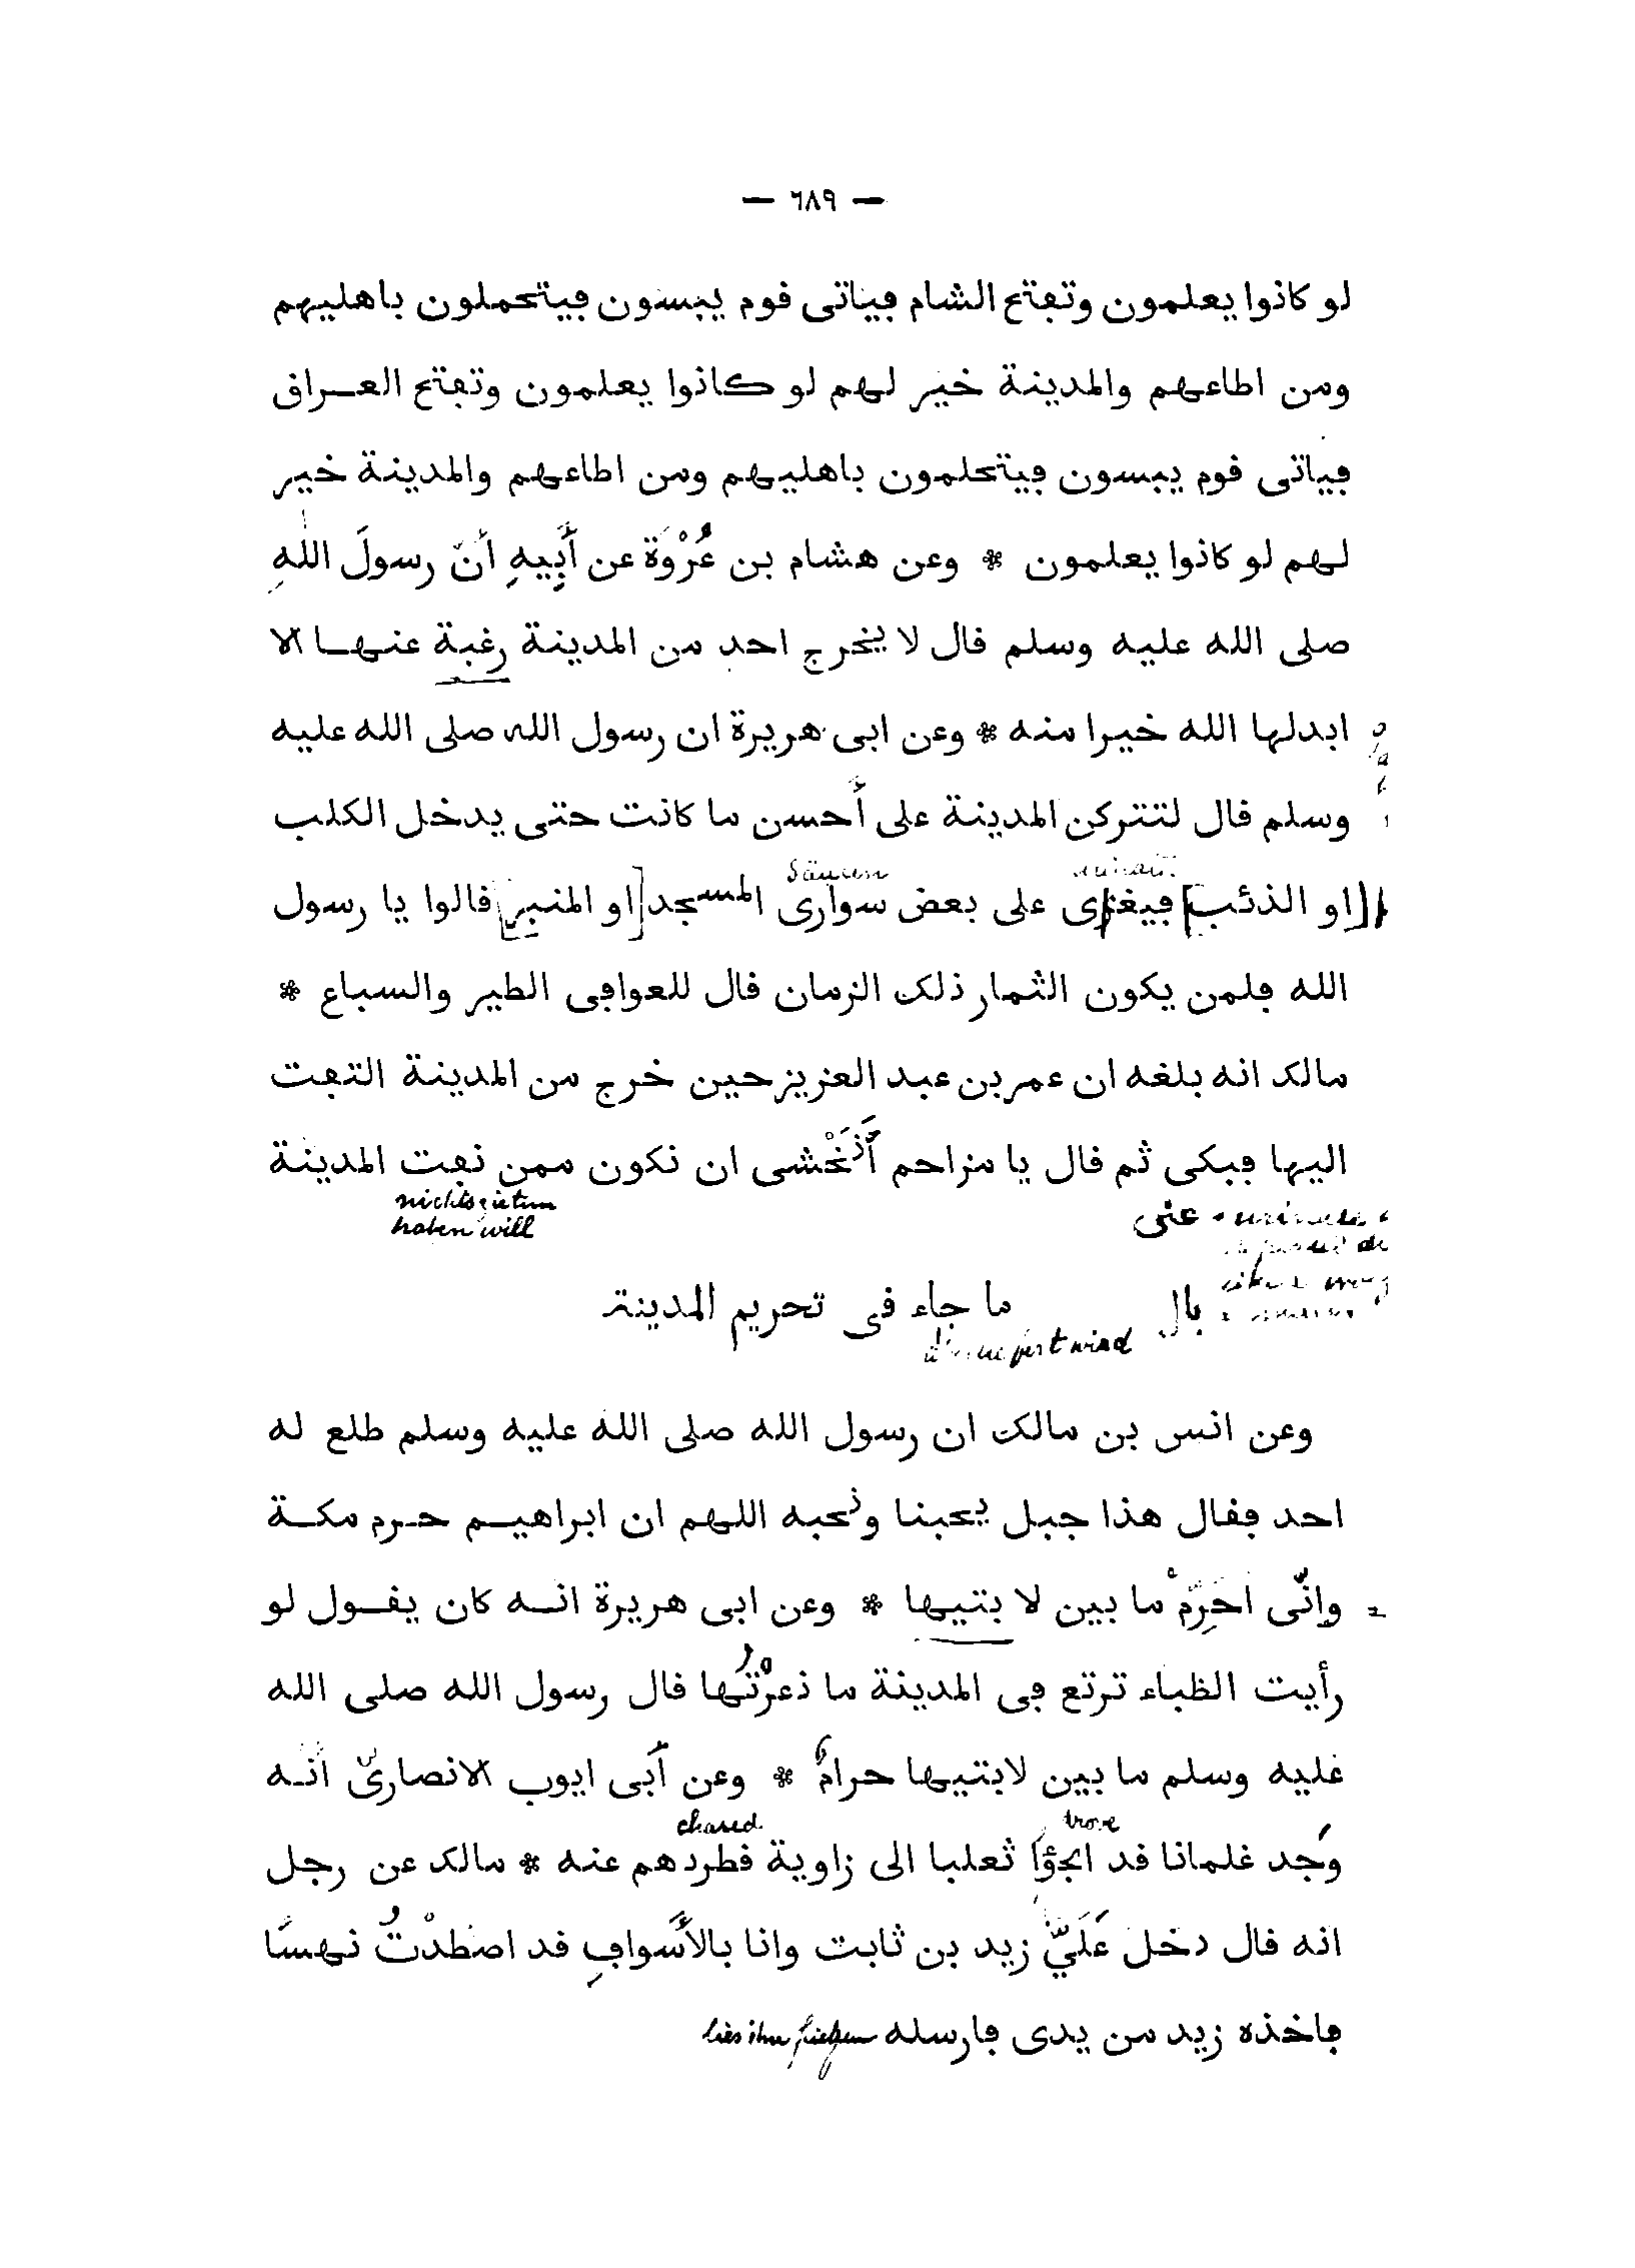 — ٦٨٩ —
لو كانوا يعلمون وتفتح الشام فياتى قوم يبسون فيتحملون باهليهم
ومن اطاعهم والمدينة خير لهم لو كانوا يعلمون وتفتح العراق
فياتى قوم يبسون فيتحلمون باهليهم ومن اطاعهم والمدينة خير
لهم لو كانوا يعلمون * وعن هشام بن عُرْوَة عن أَبِيهِ أنّ رسولَ اللهِ
صلى الله عليه وسلم قال لا يخرج احد من المدينة رغبة عنها الا
ابدلها الله خيرا منه * وعن ابى هريرة ان رسول الله صلى الله عليه
وسلم قال لتتركن المدينة على أَحسن ما كانت حتى يدخل الكلب
Säulen
[او الذئب] فيغذى على بعض سوارى المسجد [او المنبر] قالوا يا رسول
الله فلمن يكون الثمار ذلك الزمان قال للعوافى الطير والسباع *
مالك انه بلغه ان عمر بن عبد العزيز حين خرج من المدينة التفت
اليها فبكى ثم قال يا مزاحم أَتَخْشى ان نكون ممن نفت المدينة
nichts zu tun
haben will
ما جاء فى تحريم المدينة
بال
وعن انس بن مالك ان رسول الله صلى الله عليه وسلم طلع له
احد فقال هذا جبل يحبنا ونحبه اللهم ان ابراهيم حرم مكة
وانّى احَرِّمُ ما بين لا بتيها * وعن ابى هريرة انه كان يقول لو
رأيت الظباء ترتع فى المدينة ما ذعرْتُها قال رسول الله صلى الله
عليه وسلم ما بين لابتيها حرامٌ * وعن أَبى ايوب الانصارىّ انه
drove chased
وَجد غلمانا قد الجؤا ثعلبا الى زاوية فطردهم عنه * مالك عن رجل
انه قال دخل عَلَيَّ زيد بن ثابت وانا بالأَسوافِ قد اصْطدْتُ نهسًا
فاخذه زيد من يدى فارسله liess ihn fliegen